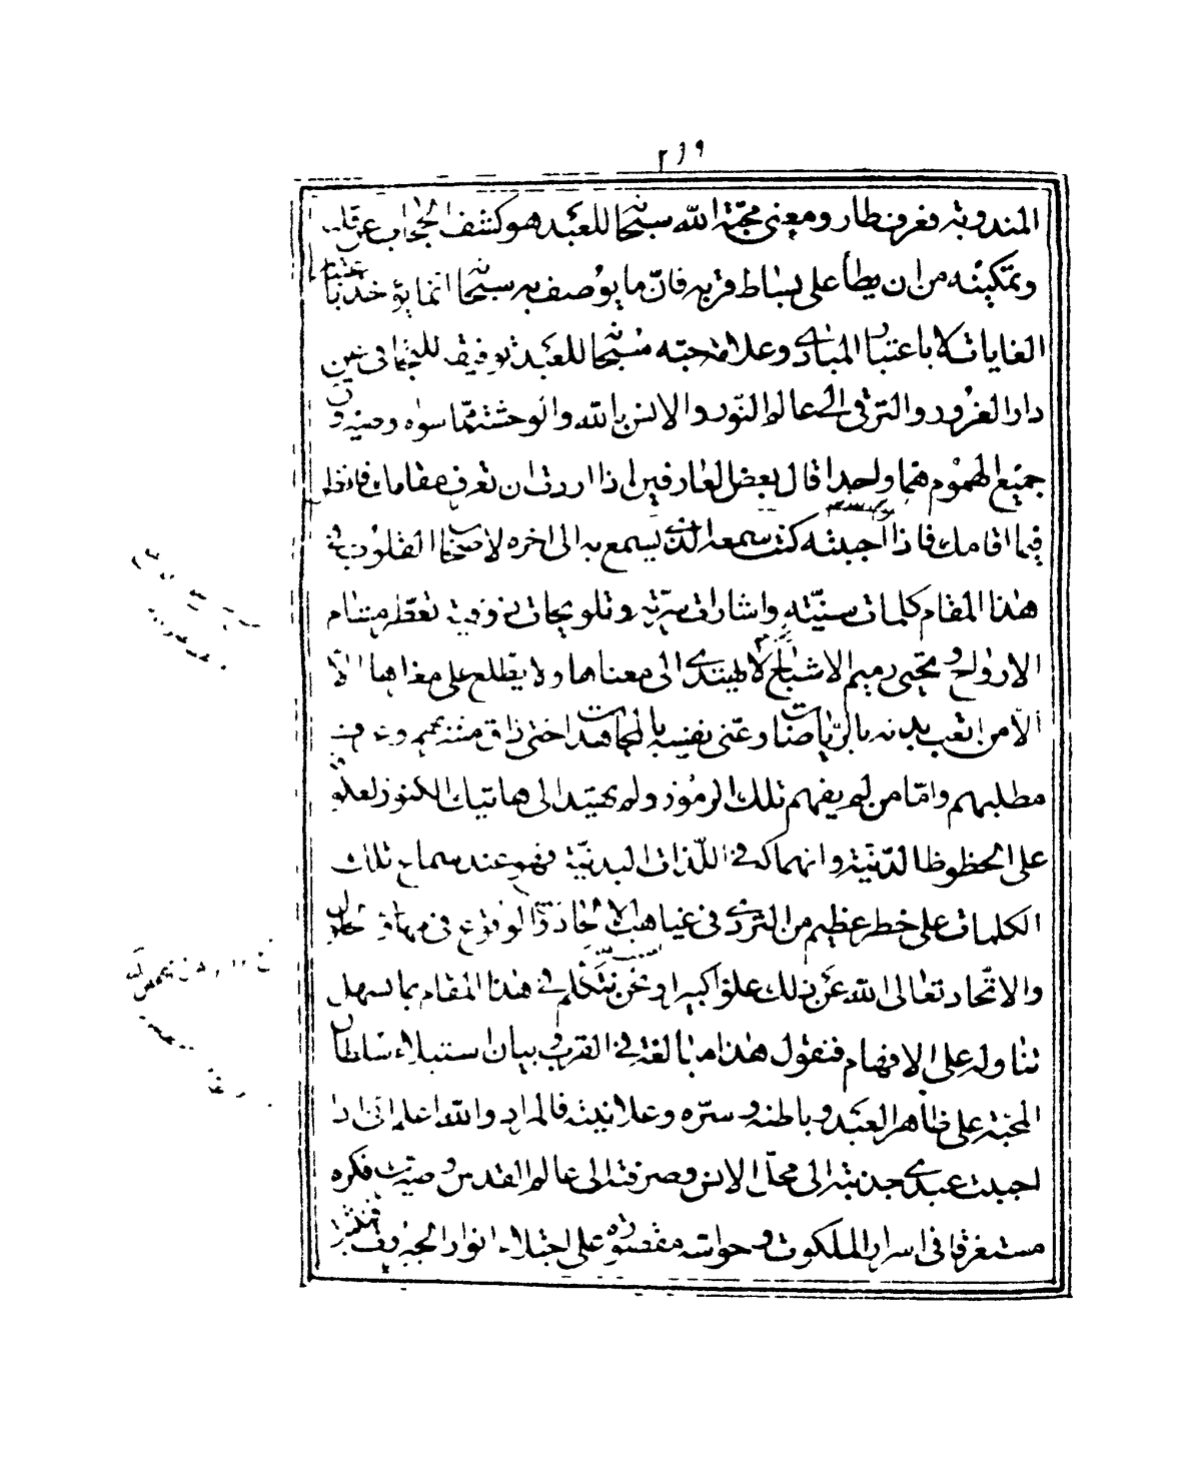 ٢١٩
المندوبة فغرض طار ومعنى محبّة الله سبحانه للعبد هو كشف الحجاب عن قلبه
وتمكينه من ان يطأ على بساط قربه فانّ ما يوصف به سبحانه انما يؤخذ باعتبار
الغايات لا باعتبار المبادى وعلامة حبّه سبحانه للعبد توفيقه للتجافى عن
دار الغرور والترقى الى عالم النّور والانس بالله والوحشة ممّا سواه وصيرورة
جميع الهموم همّا واحدا قال بعض العارفين اذا اردت ان تعرف مقامك فانظر
فيما اقامك فاذا احببته كنت سمعه الذى يسمع به الى اخره لاصحاب القلوب فى
هذا المقام كلمات سنيّة واشارات سرّية وتلويحات ذوقية تعطّر مشام
الارواح وتحيى رميم الاشباح لا يهتدى الى معناها ولا يطّلع على مغزاها الّا
الّا من اتعب بدنه بالرياضات وعنّى نفسه بالمجاهدات حتى ذاق مشربهم وعرف
مطلبهم وامّا من لم يفهم تلك الرموز ولم يهتد الى هاتيك الكنوز لعكوفه
على الحظوظ الدّنيّة وانهماكه فى اللّذات البدنيّة فهو عند سماع تلك
الكلمات على خطر عظيم من التردى فى غياهب الالحاد والوقوع فى مهاوى الحلول
والاتّحاد تعالى الله عن ذلك علوا كبيرا ونحن نتكلم فى هذا المقام بما يسهل
تناوله على الافهام فنقول هذا مبالغة فى القرب وبيان استيلاء سلطان
المحبّة على ظاهر العبد وباطنه وسرّه وعلانيته فالمراد والله اعلم انى اذا
احببت عبدى جذبته الى محلّ الانس وصرفته الى عالم القدس وصيرت فكره
مستغرقا فى اسرار الملكوت وحواسه مقصورة على اجتلاء انوار الجبروت فتثبت